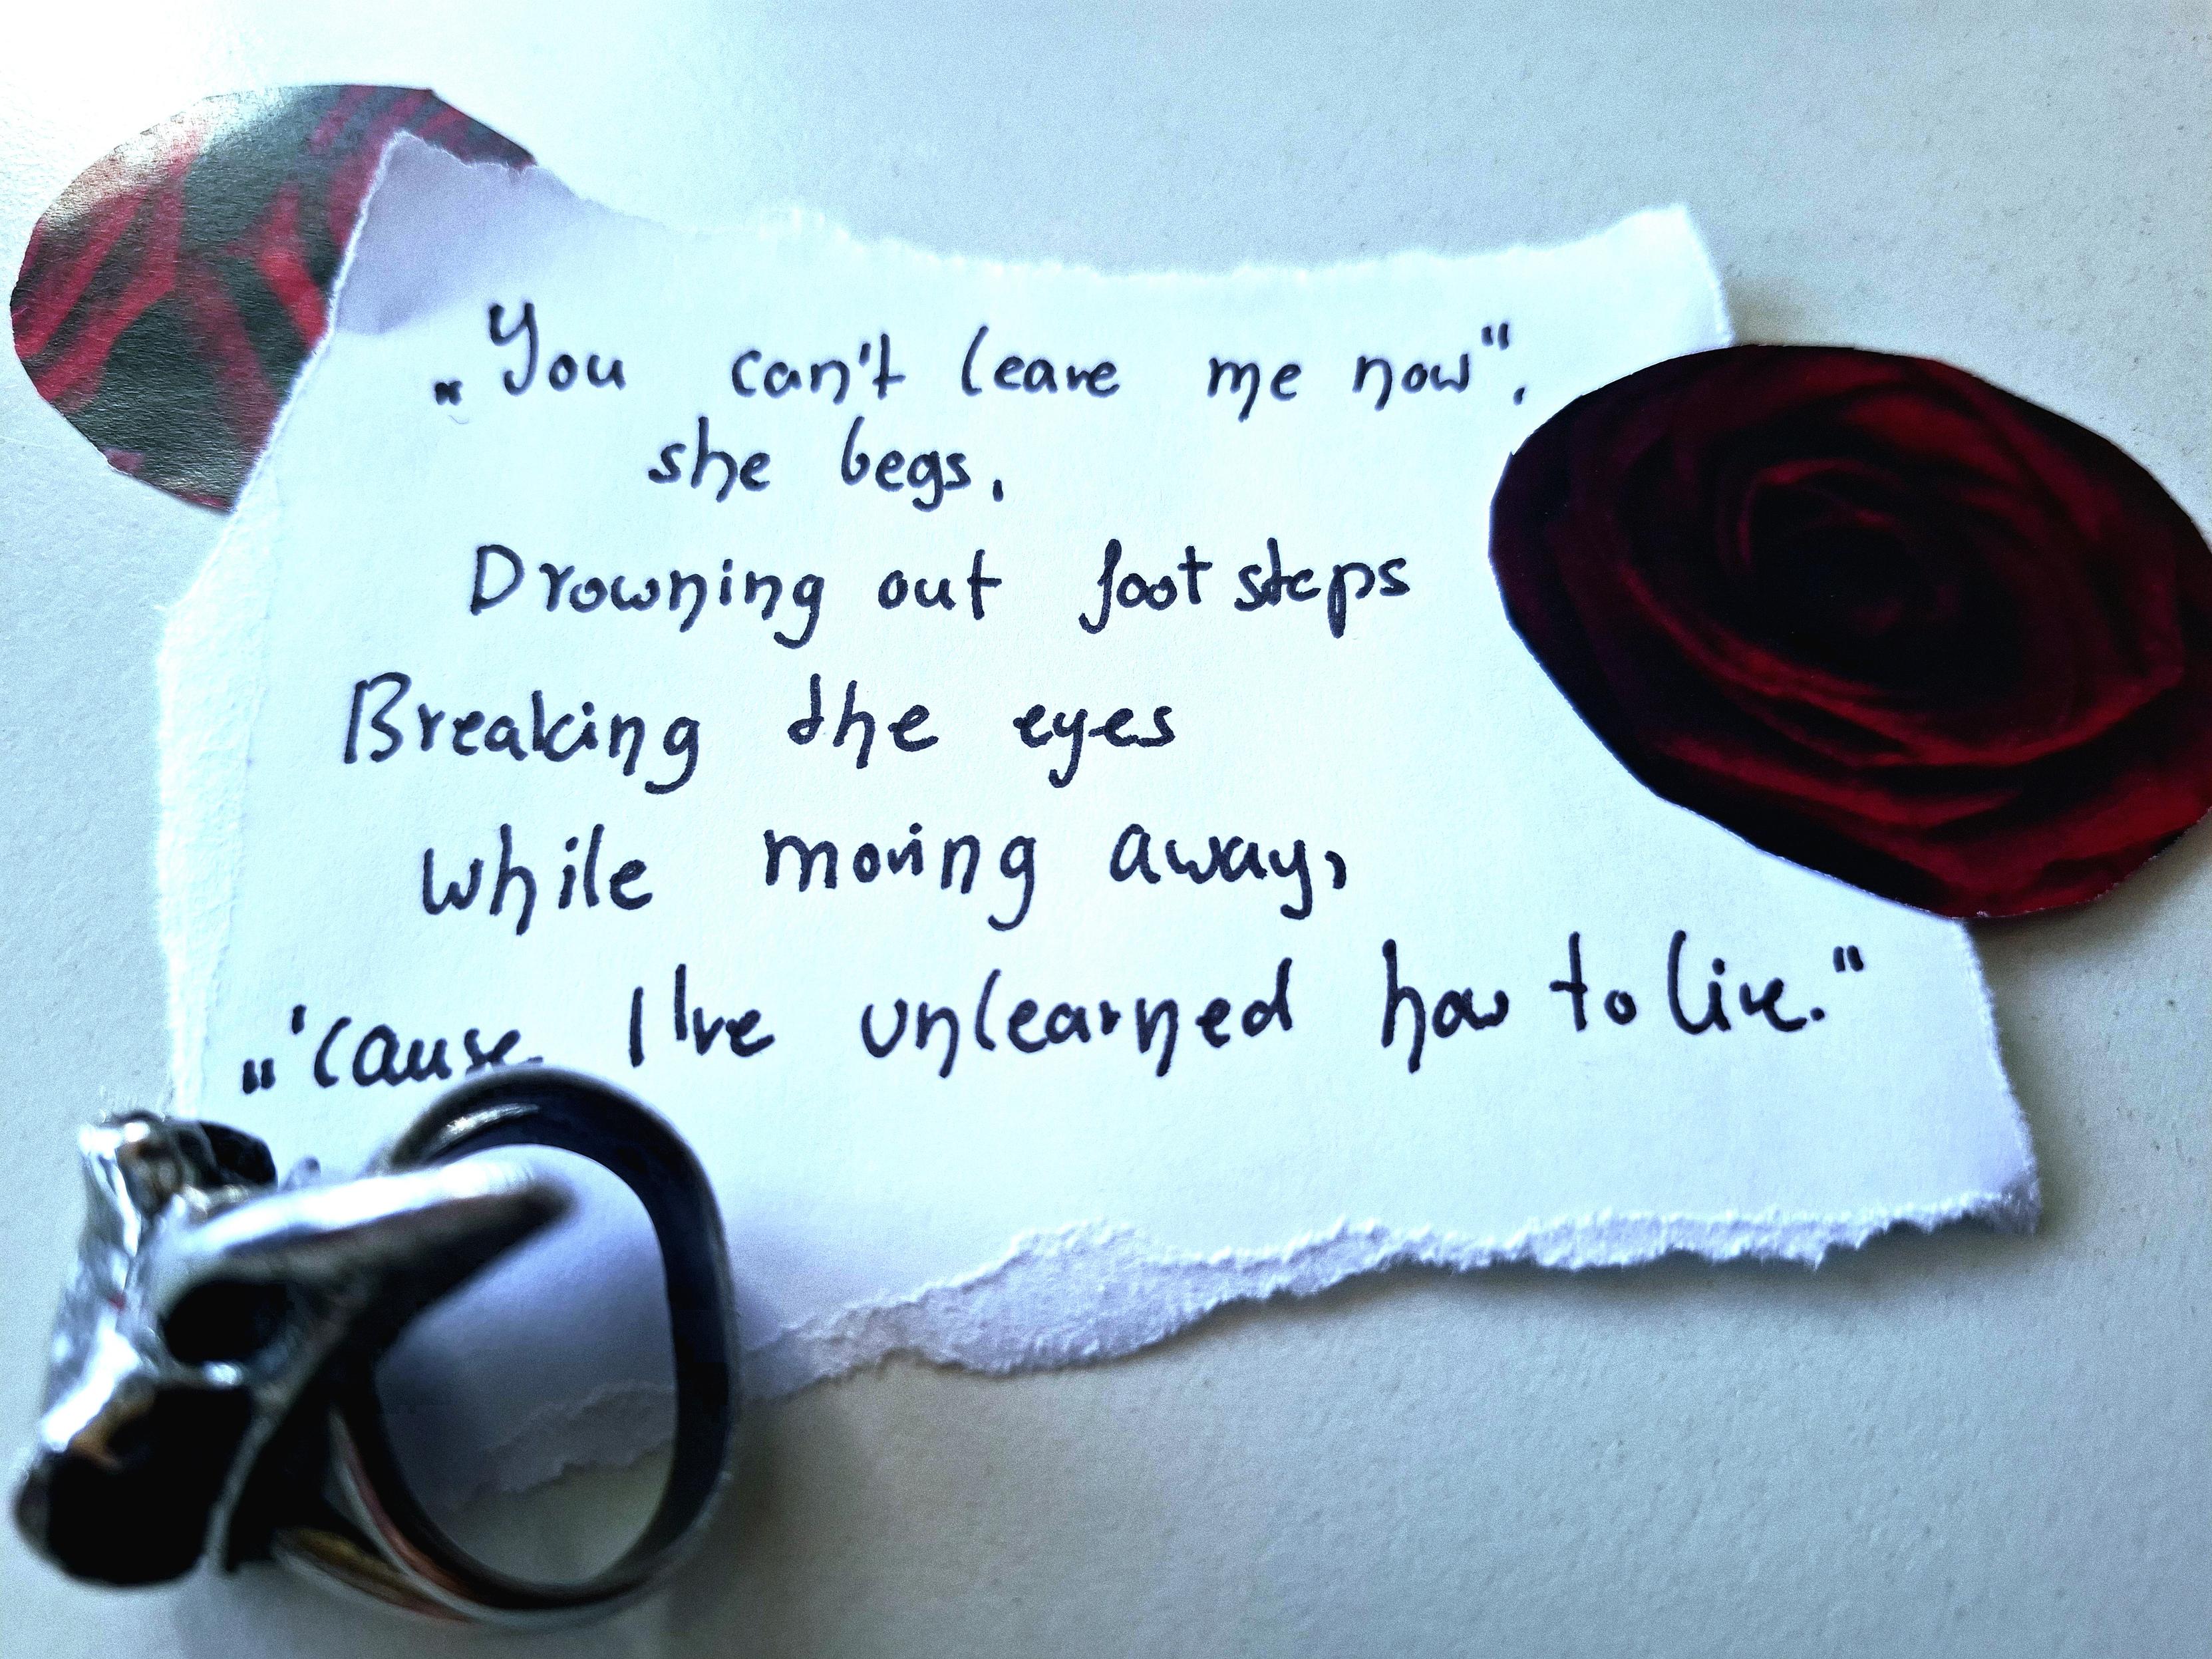 „You can't leave me now",
she begs.
Drowning out footsteps
Breaking the eyes
while moving away,
„'cause I've unlearned how to live."